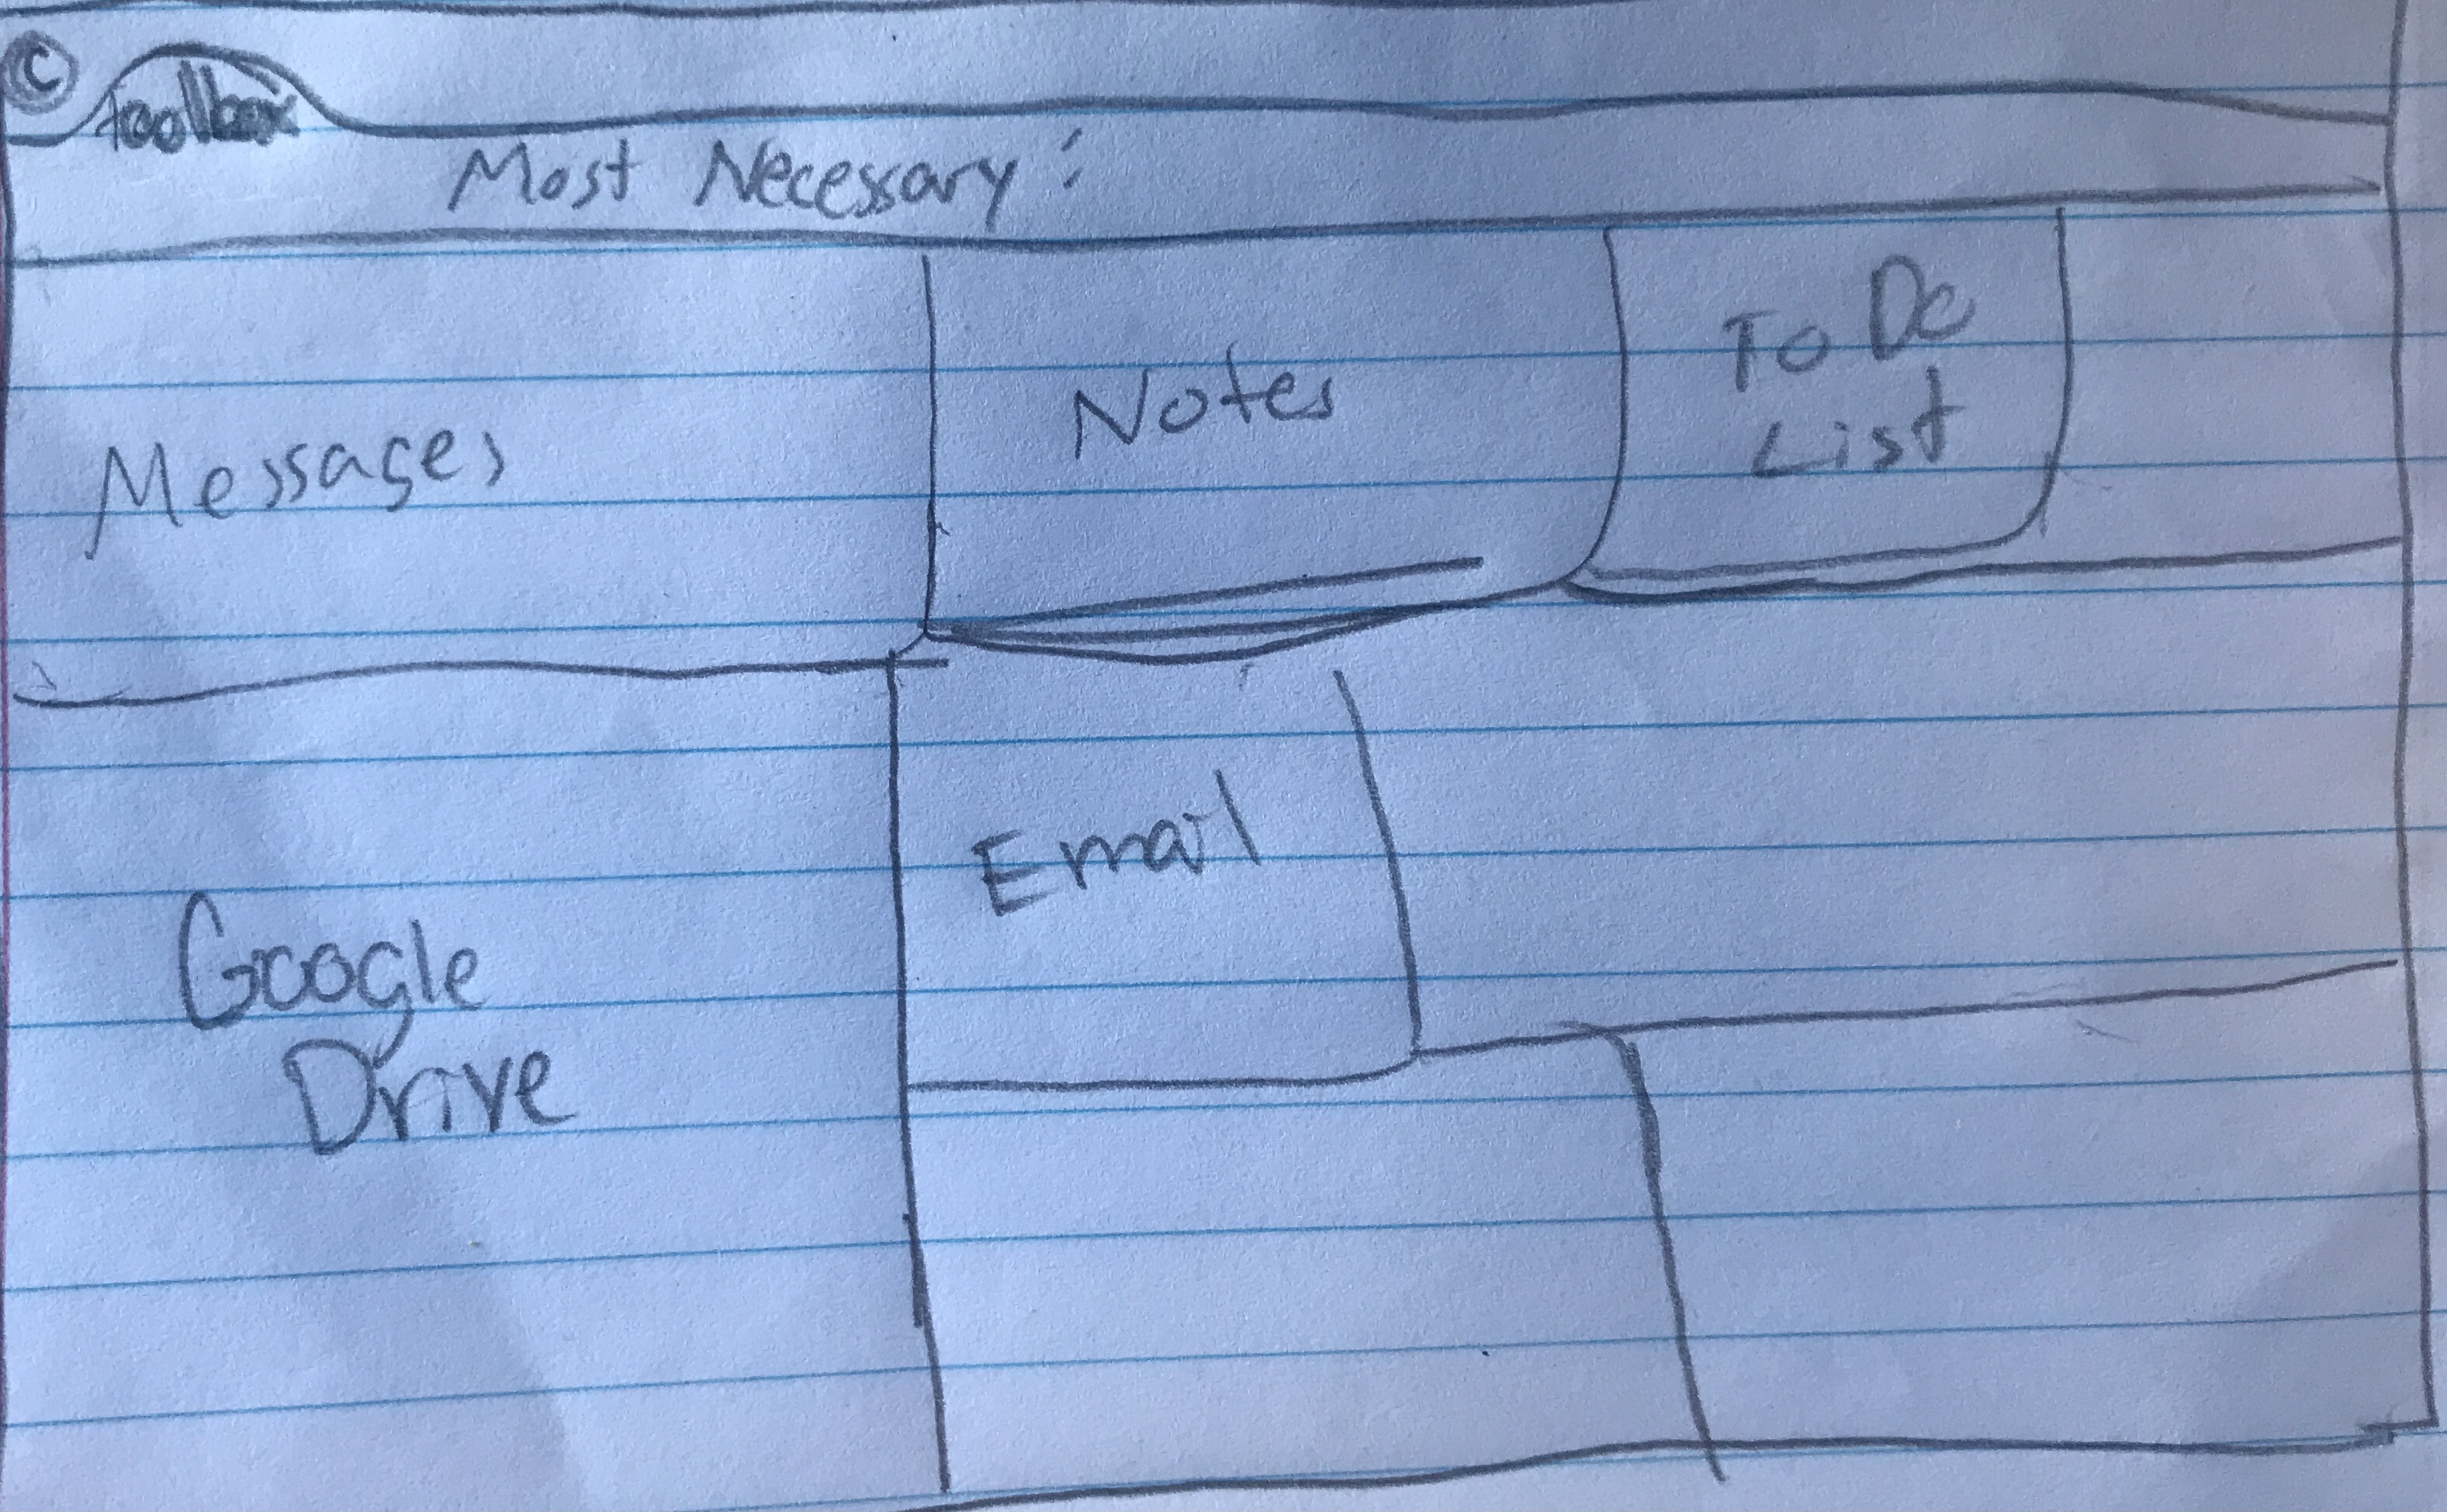 ©
Toolbox
Most Necessary:
Messages
Notes
To Do
List
Email
Google
Drive